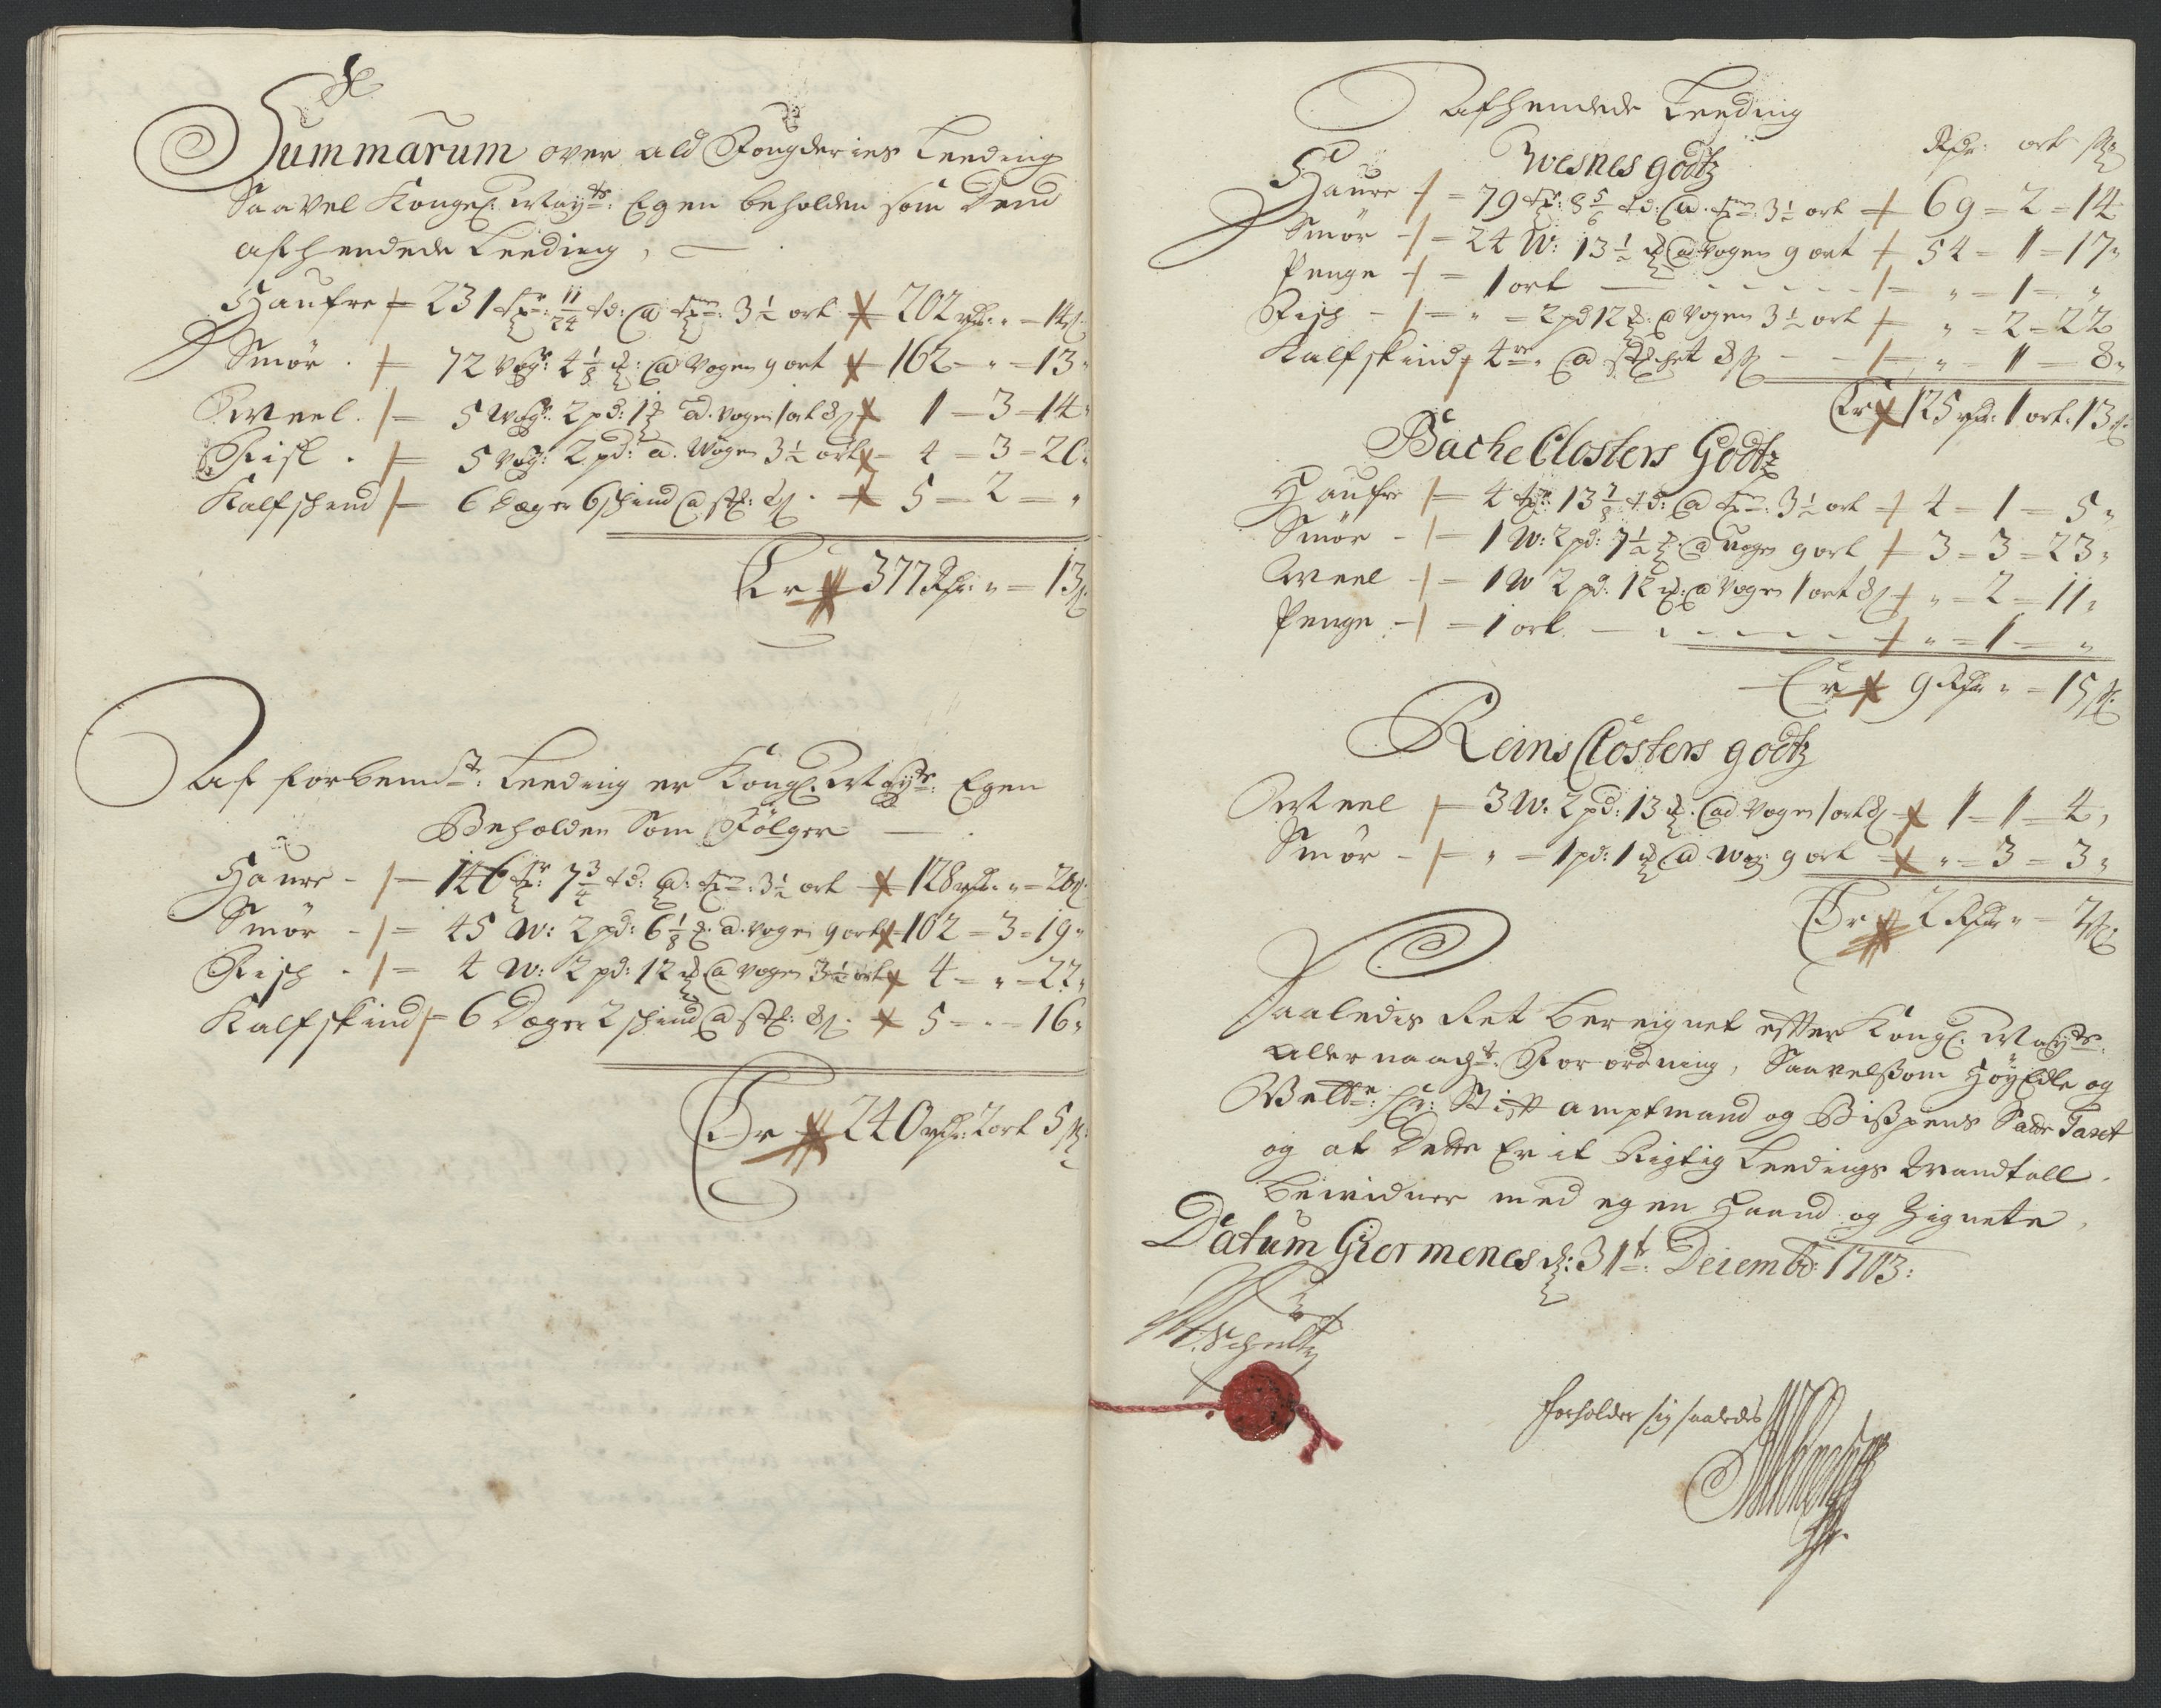 Summarum over ald Fougderies Leeding
Saavel Kongel: Mayts: Egen beholden som Dend
afhendede Leeding,
Haufre 231 tr: 11/24 td: @ tn: 3½ ort 202 rdr: „ 14 s
Smør 72 Vog: 4⅛ @ Vogen 9 ort 162 „ 13
Meel 5 Wog: 2 pd: 1 @ Vogen 1 ort 8 s 1 3 14
Fisk 5 Vog: 2 pd: @ Wogen 3½ ort 4 3 20
Kalfskind 6 Deger 6 skind @ stk: 8 s 5 2 „
Er 377 Rdr: „ 13 s
Af forbemdte: Leeding er Kongl: Mayts: Egen
Beholden Som Følger
Haure 146 tr: 7¾ td: @ tn: 3½ ort 128 rdr: „ 20 s
Smør 45 W: 2 pd: 6⅛ @ Vogen 9 ort 102 3 19
Fisch 4 W: 2 pd: 12 @ Vogen 3½ ort 4 „ 22
Kalfskind 6 Deger 2 skind @ stk: 8 s 5 „ 16
Er 240 rdr: 2 ort 5 s
Afhendede Leeding
Rdr: ort s
Wesnes godtz
Haure 79 tr: 8 5/6 td: @ tn: 3½ ort 69 2 14
Smør 24 W: 13½ @ Vogen 9 ort 54 1 17
Penge 1 ort „ 1 „
Fisch „ 2 pd 12 @ Vogen 3½ ort „ 2 22
Kalfskind 4re @ stchet 8 s „ 1 8
Er 125 rdr: 1 ort: 13 s
Bache Closters Godtz
Haufre 4 tr: 13⅞ td: @ tn: 3½ ort 4 1 5
Smør 1 W: 2 pd: 7½ @ Vogen 9 ort 3 3 23
Meel 1 W 2 pd: 12 @ Vogen 1 ort 8 s „ 2 11
Penge 1 ort „ 1 „
Er 9 Rdr „ 15 s
Reins Closters godtz
Meel 3 W: 2 pd: 13 @ Vogen 1 ort 8 s 1 1 4
Smør „ 1 pd: 1 @ Wog: 9 ort „ 3 3
Er 2 Rdr „ 7 s
Saaledis Ret Bereignet effter Kongl: Mayts:
allernaadgt: Forordning, Saavelsom Høy Edle og
Velbr: Hr: Stiftamptmand og Bispens Sadte Taxt
og at Dette Er it Rigtig Leedings Mandtall
bevidner med egen Haand og Zignete,
Datum Giermenes d: 31te: Decembr: 1703:
Schultz
forholder sig saaledes